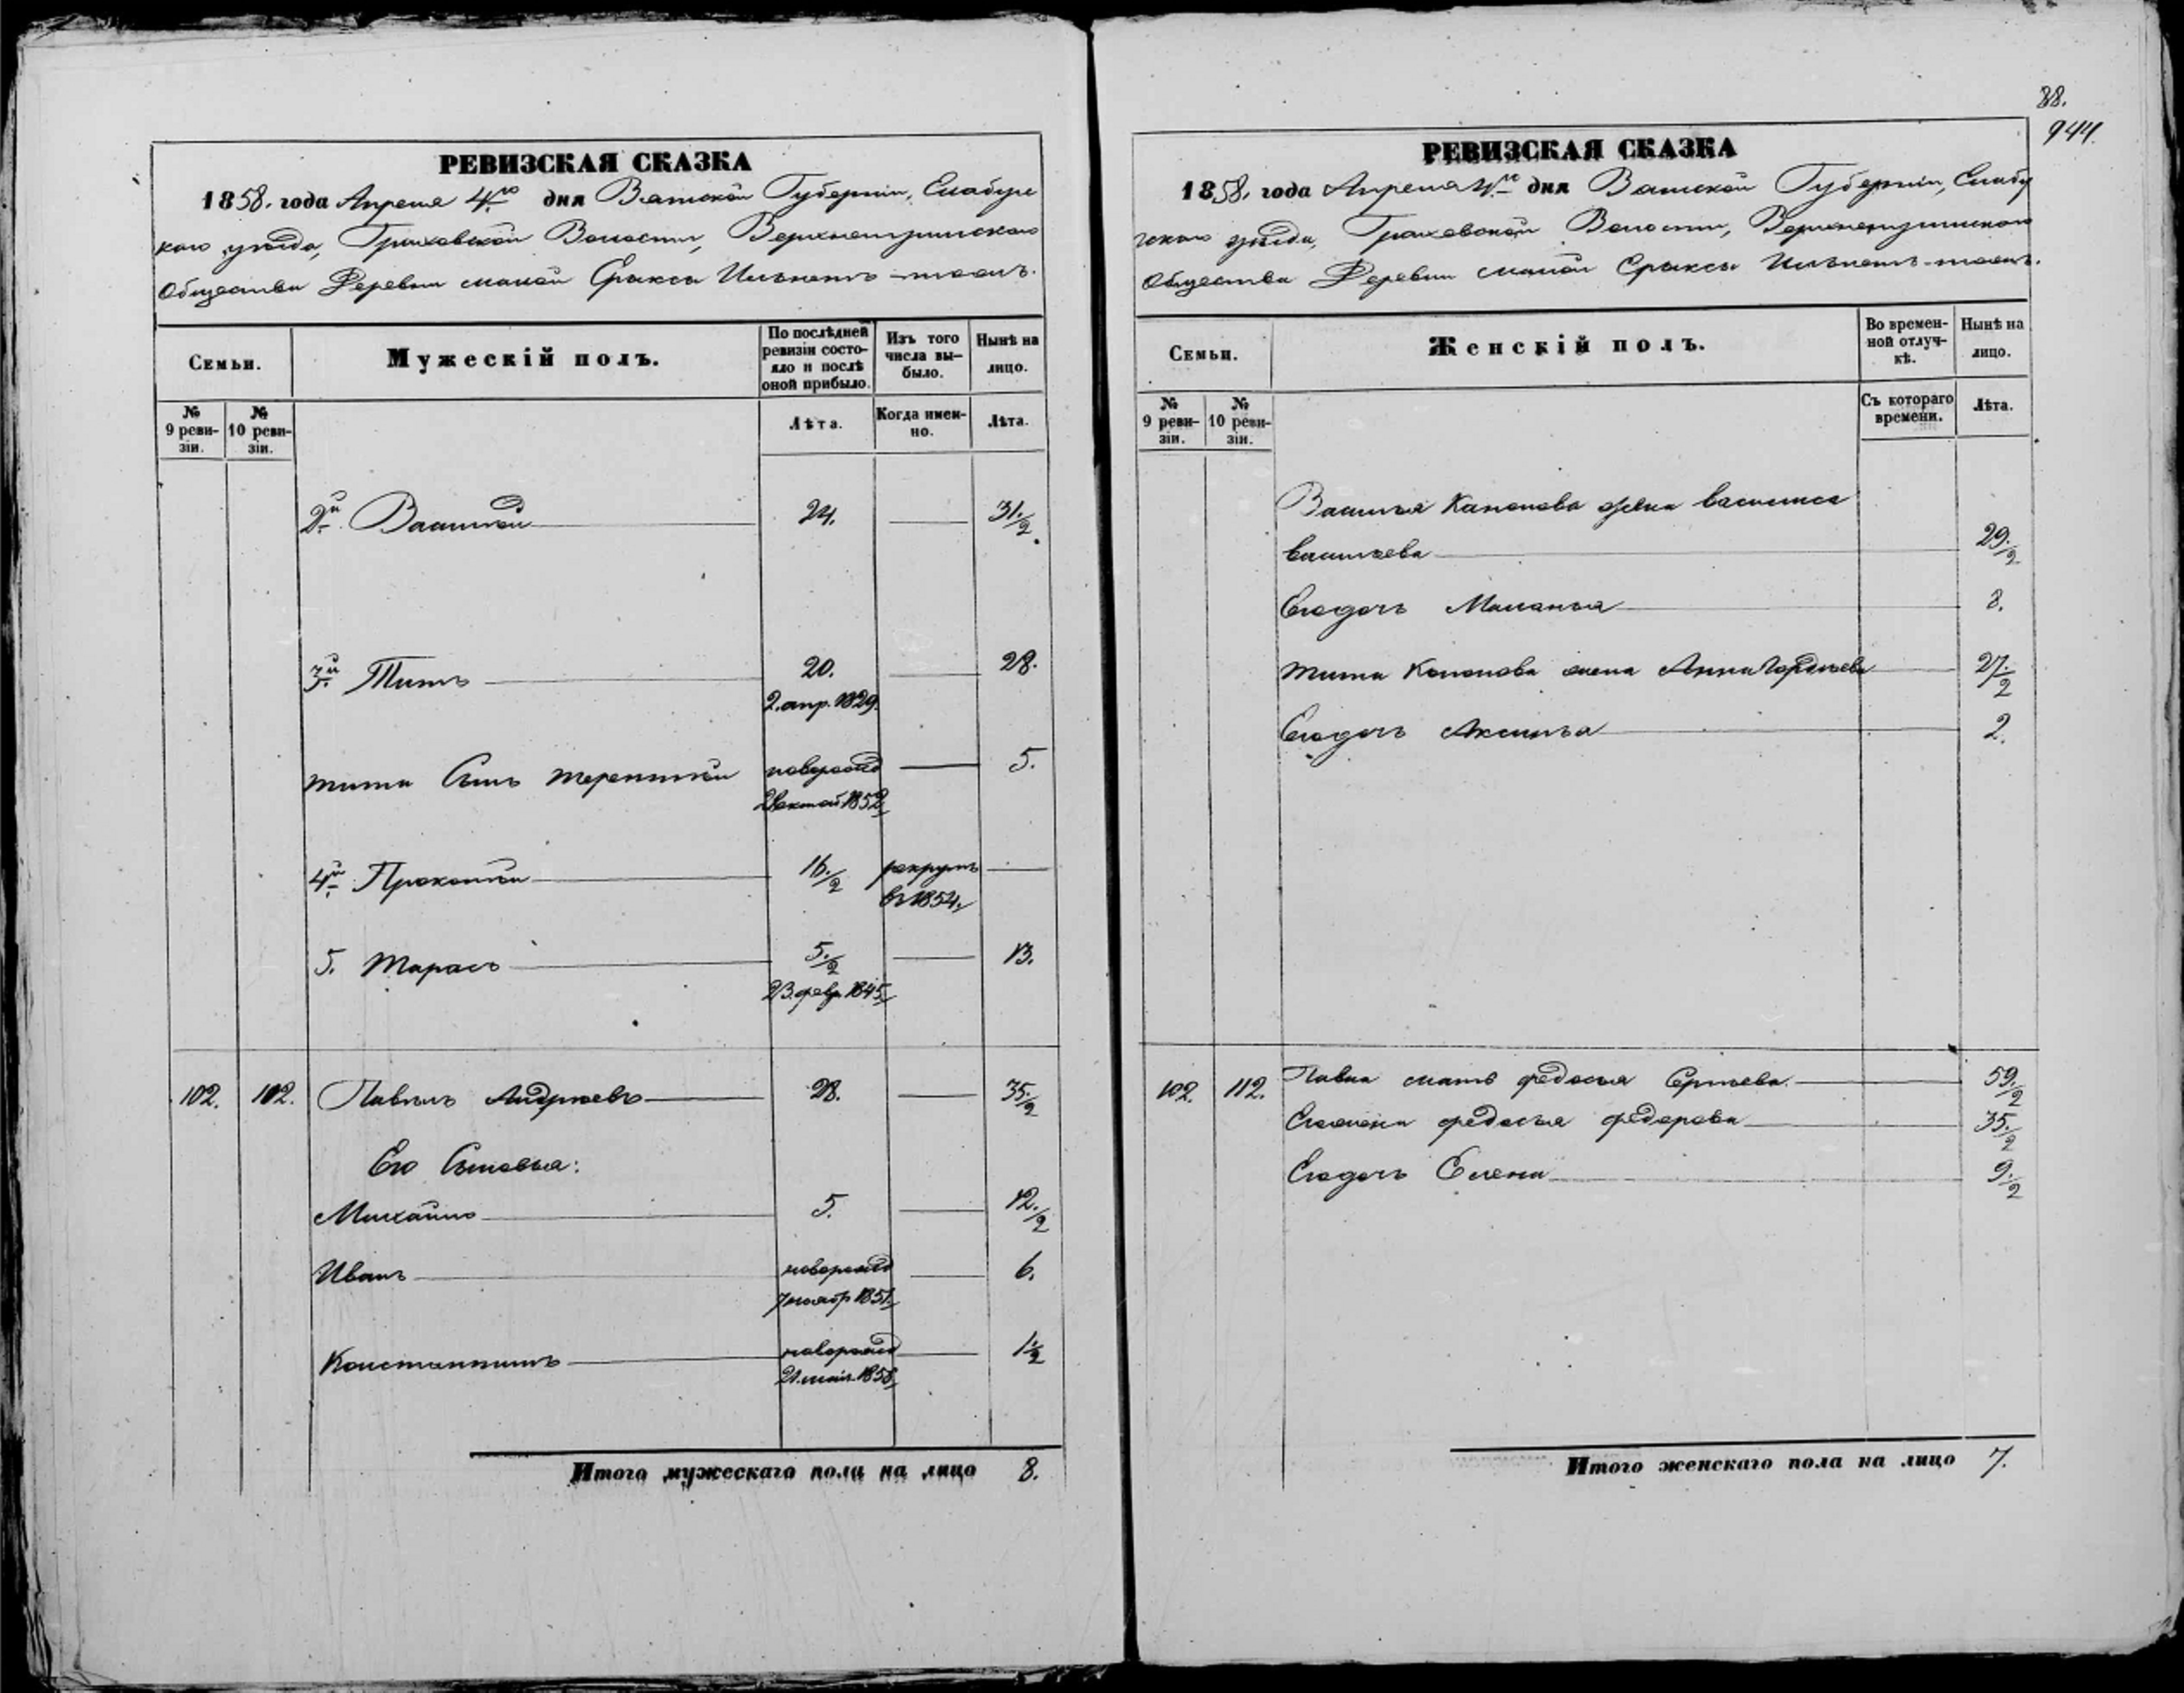 88.
944.
РЕВИЗСКАЯ СКАЗКА
1858. года Апреля 4го дня Вятской Губернiи, Елабуж
скаго уѣзда, Граховской Волости,
Общества Деревни малой Ерыксы
Семьи.
Мужескiй полъ.
По послѣдней ревизiи состо-
яло и послѣ
оной прибыло.
Изъ того
числа вы-
было.
Нынѣ на
лицо.
№
9 реви-
зiи.
№
10 реви-
зiи.
Лѣта.
Когда имен-
но.
Лѣта.
2й Василiй 24. 31½
3й Титъ 20. 28.
2. апр. 1829.
Тита Сынъ Терентiй новорожд 5.
1852
4й Прокопiй 16½ рекрутъ
въ 1854.
5. Тарасъ 5½ 13.
23. февр. 1845
102. 102. Павелъ Андреевъ 28. 35½
Его Сыновья:
Михайло 5. 12½
Иванъ новорожд 6.
7 ноябр 1851
Константинъ новорожд 1½
21. маiя 1856
Итого мужескаго пола на лицо 8.
РЕВИЗСКАЯ СКАЗКА
1858. года Апреля 4го дня Вятской Губернiи, Елабу
жскаго уѣзда, Граховской Волости,
Общества Деревни малой Ерыксы
Семьи.
Женскiй полъ.
Во времен-
ной отлуч-
кѣ.
Нынѣ на
лицо.
№
9 реви-
зiи.
№
10 реви-
зiи.
Съ котораго
времени.
Лѣта.
Василья Кононова жена василиса
васильева 29½
Его дочь Маланья 8.
Тита Кононова жена Анна Гордѣева 27½
Его дочь Аксинья 2.
102. 112. Павла мать федосья Сергѣева. 59½
Его жена федосья федорова 35½
Его дочь Елена 9½
Итого женскаго пола на лицо 7.